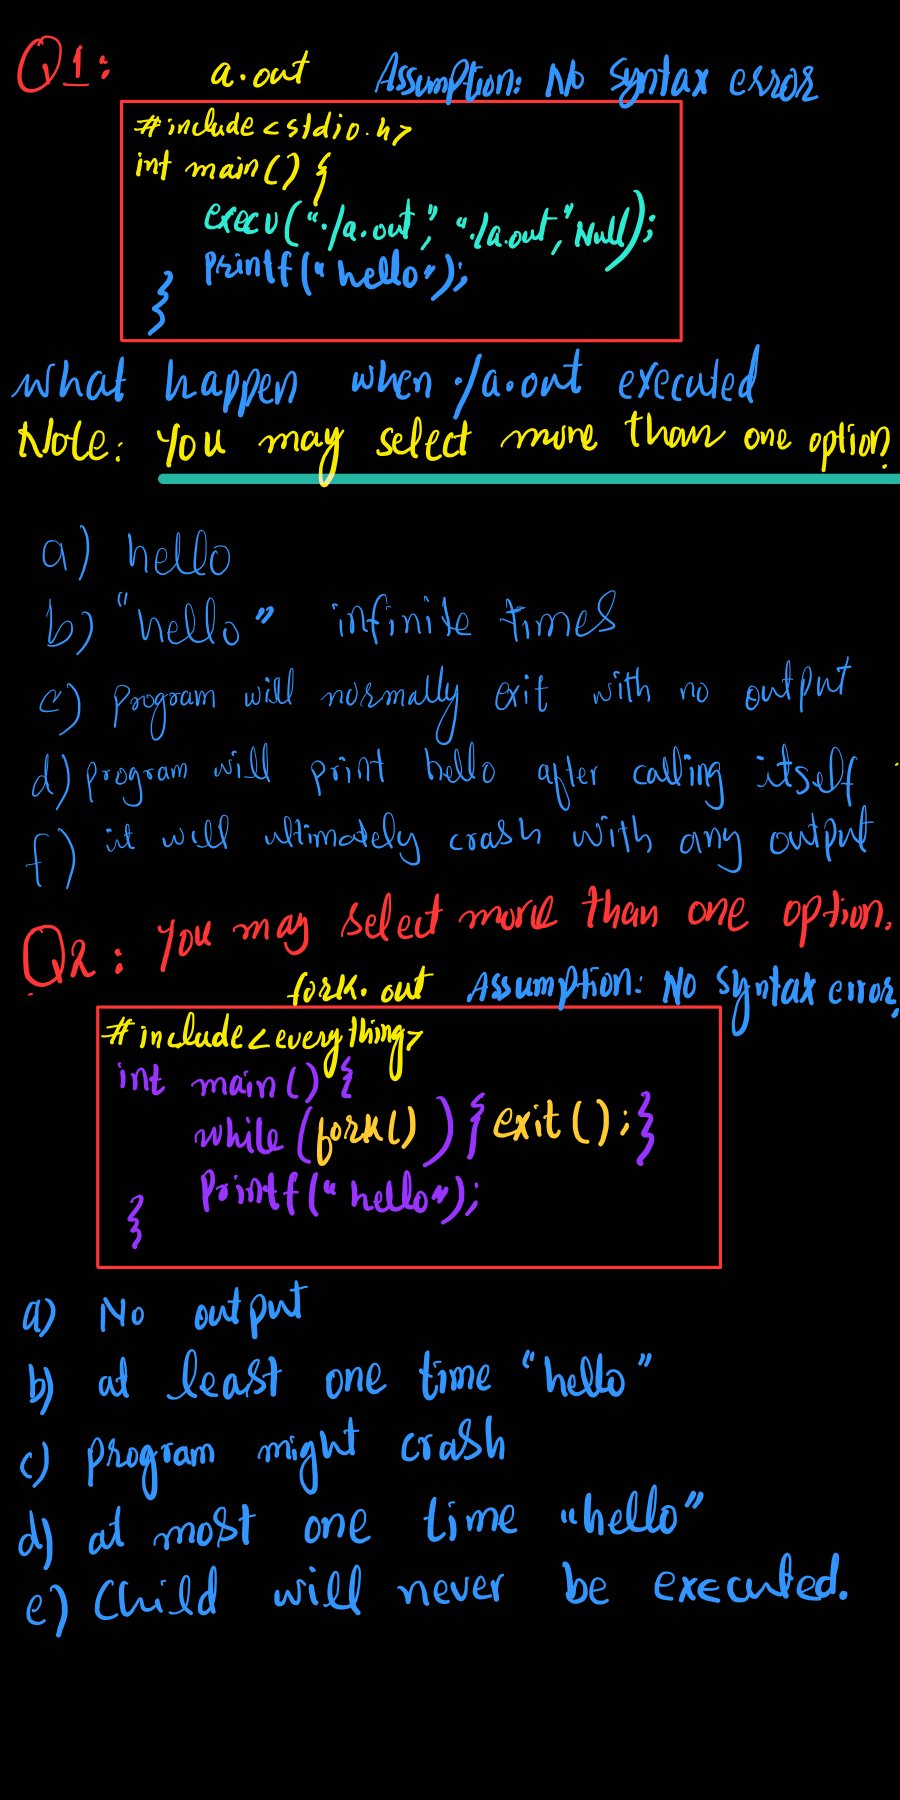 Q1:
a.out Assumption: No syntax error
#include <stdio.h>
int main() {
execv("./a.out", "./a.out", Null);
printf("hello");
}
what happen when ./a.out executed
Note: You may select more than one option.
a) hello
b) "hello" infinite times
c) program will normally exit with no output
d) program will print hello after calling itself
f) it will ultimately crash with any output
Q2: You may select more than one option.
fork.out Assumption: No syntax error.
#include <everything>
int main() {
while(fork()) { exit(); }
printf("hello");
}
a) No output
b) at least one time "hello"
c) program might crash
d) at most one time "hello"
e) Child will never be executed.